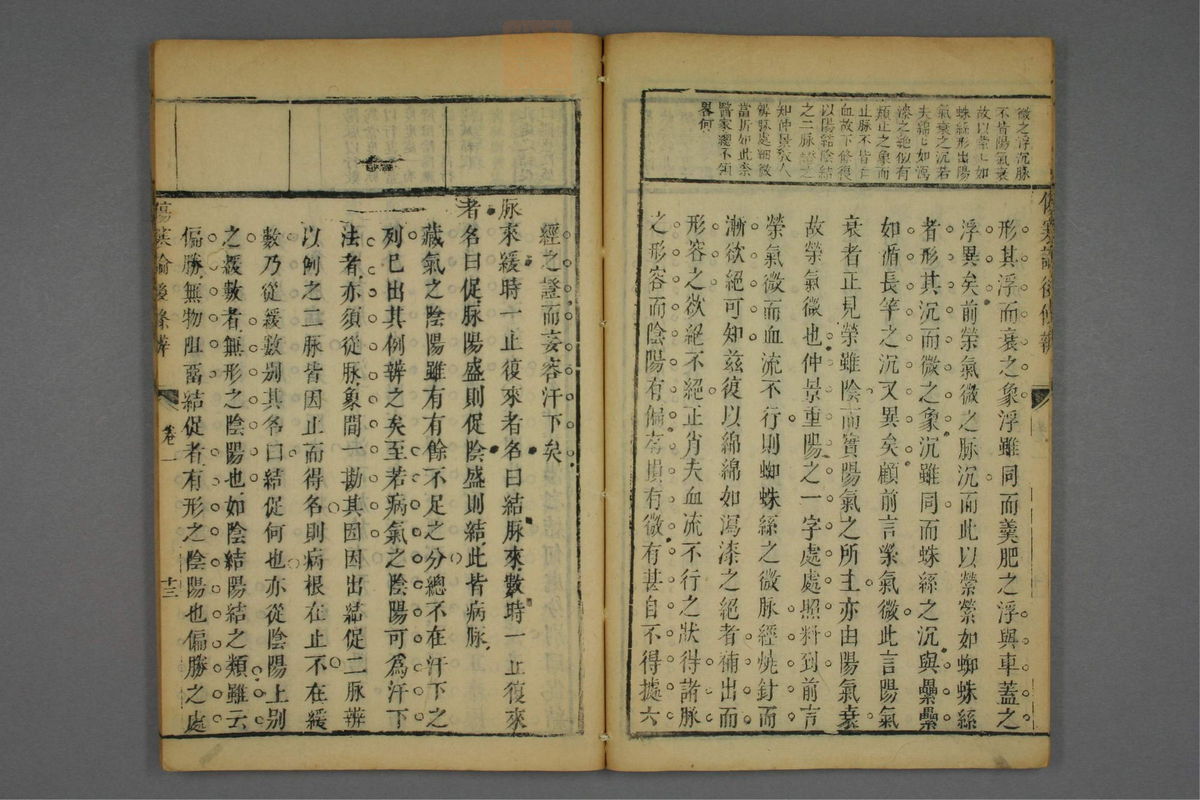 微之浮沉脉
不皆陽氣衰
故以縈縈如
蛛絲形出陽
氣衰之沉若
夫綿綿如瀉
漆之絶似有
類正之象而
止脉不皆亡
血故下條復
以陽結陰結
之二脉
知仲景教人
辨脉處細微
當折如此柰
醫家總不領
畧何
形其浮而衰之象浮雖同而羹肥之浮與車蓋之
浮異矣前榮氣微之脉沉而此以縈縈如蜘蛛絲
者形其沉而微之象沉雖同而蛛絲之沉與纍纍
如循長竿之沉又異矣顧前言榮氣微此言陽氣
衰者正見榮雖陰而實陽氣之所主亦由陽氣衰
故榮氣微也仲景重陽之一字處處照料到前言
榮氣微而血流不行則蜘蛛絲之微脉經燒針而
漸欲絶可知兹復以綿綿如瀉漆之絶者補出而
形容之欲絶不絶正肖夫血流不行之狀得諸脉
之形容而陰陽有偏有損有微有甚自不得據六
經之證而妄容汗下矣
脉來緩時一止復來者名曰結脉來數時一止復來
者名曰促脉陽盛則促陰盛則結此皆病脉
藏氣之陰陽雖有有餘不足之分總不在汗下之
列已出其例辨之矣至若病氣之陰陽可爲汗下
法者亦須從脉象間一勘其因因出結促二脉辨
以例之二脉皆因止而得名則病根在止不在緩
數乃從緩數别其名曰結促何也亦從陰陽上别
之緩數者無形之陰陽也如陰結陽結之類雖云
偏勝無物阻畱結促者有形之陰陽也偏勝之處
傷寒論後條辨
卷一
十三